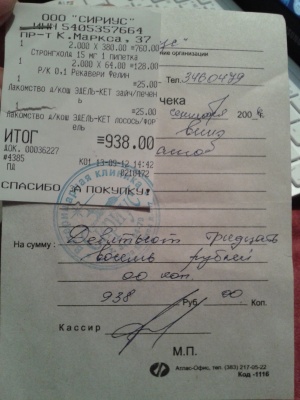 ООО "СИРИУС"
ИНН 5405357664
ПР-Т К.Маркса, 37
1
2.000 X 380.00 =760.00
Стронгхолд 15 мг 1 пипетка
2.000 X 64.00 =128.00
Р/К 0.1 Рекавери Фелин
=25.00
лакомство д/кош ЭДЕЛЬ-КЕТ зайч/печен
=25.00
лакомство д/кош ЭДЕЛЬ-КЕТ лосось/фор
ель
ИТОГ =938.00
ДОК. 00036227
#4385 К01 13-09-12 14:42
СПАСИБО ЗА ПОКУПКУ!
организации
Тел. 3460479
чека
сентября 200
На сумму: Девятьсот тридцать
восемь рублей
00 коп.
938 Руб. 00 Коп.
Кассир
М.П.
Атлас-Офис, тел. (383) 217-05-22
Код -1116